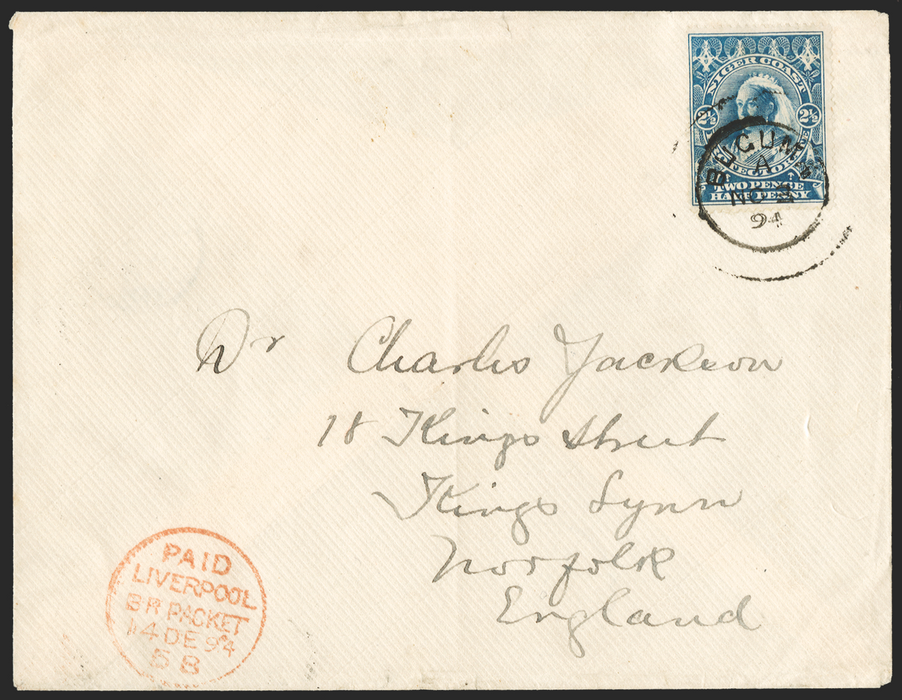 NIGER COAST
PROTECTORATE
2½ 2½
TWO PENCE
HALF PENNY
BUGUMA
A
NO
94
Dr Charles Jackson
18 Kings Street
Kings Lynn
Norfolk
England
PAID
LIVERPOOL
BR PACKET
14 DE 94
5B